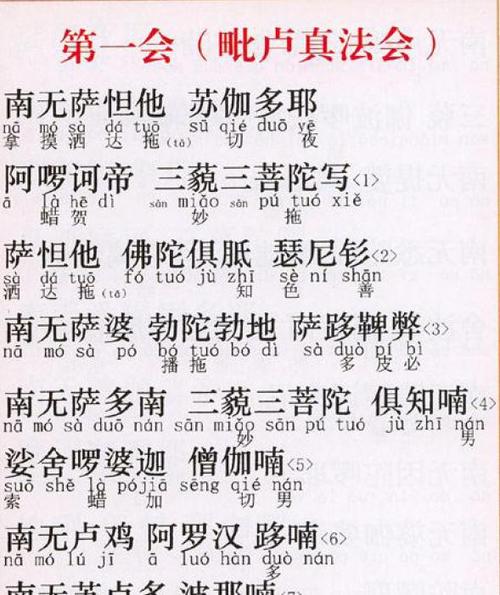 第一会（毗卢真法会）
南无萨怛他 苏伽多耶
nā mó sà dá tuō sū qié duō yē
拿 摸 洒 达 拖(tō) 切 夜
阿啰诃帝 三藐三菩陀写<1>
ā là hē dì sān miǎo sān pú tuó xiě
蜡 贺 妙 拖
萨怛他 佛陀俱胝 瑟尼钐<2>
sà dá tuō fó tuó jù zhī sè ní shān
洒 达 拖(tō) 知 色 善
南无萨婆 勃陀勃地 萨跢鞞弊<3>
nā mó sà pó bó tuó bó dì sà duò pí bì
播 拖 多 皮 必
南无萨多南 三藐三菩陀 俱知喃<4>
nā mó sà duō nán sān miǎo sān pú tuó jù zhī nán
妙 男
娑舍啰婆迦 僧伽喃<5>
suō shě là pójiā sēng qié nán
索 蜡 加 切 男
南无卢鸡 阿罗汉 跢喃<6>
nā mó lú jī ā luó hàn duò nán
多
南无苏卢多 波那喃<7>